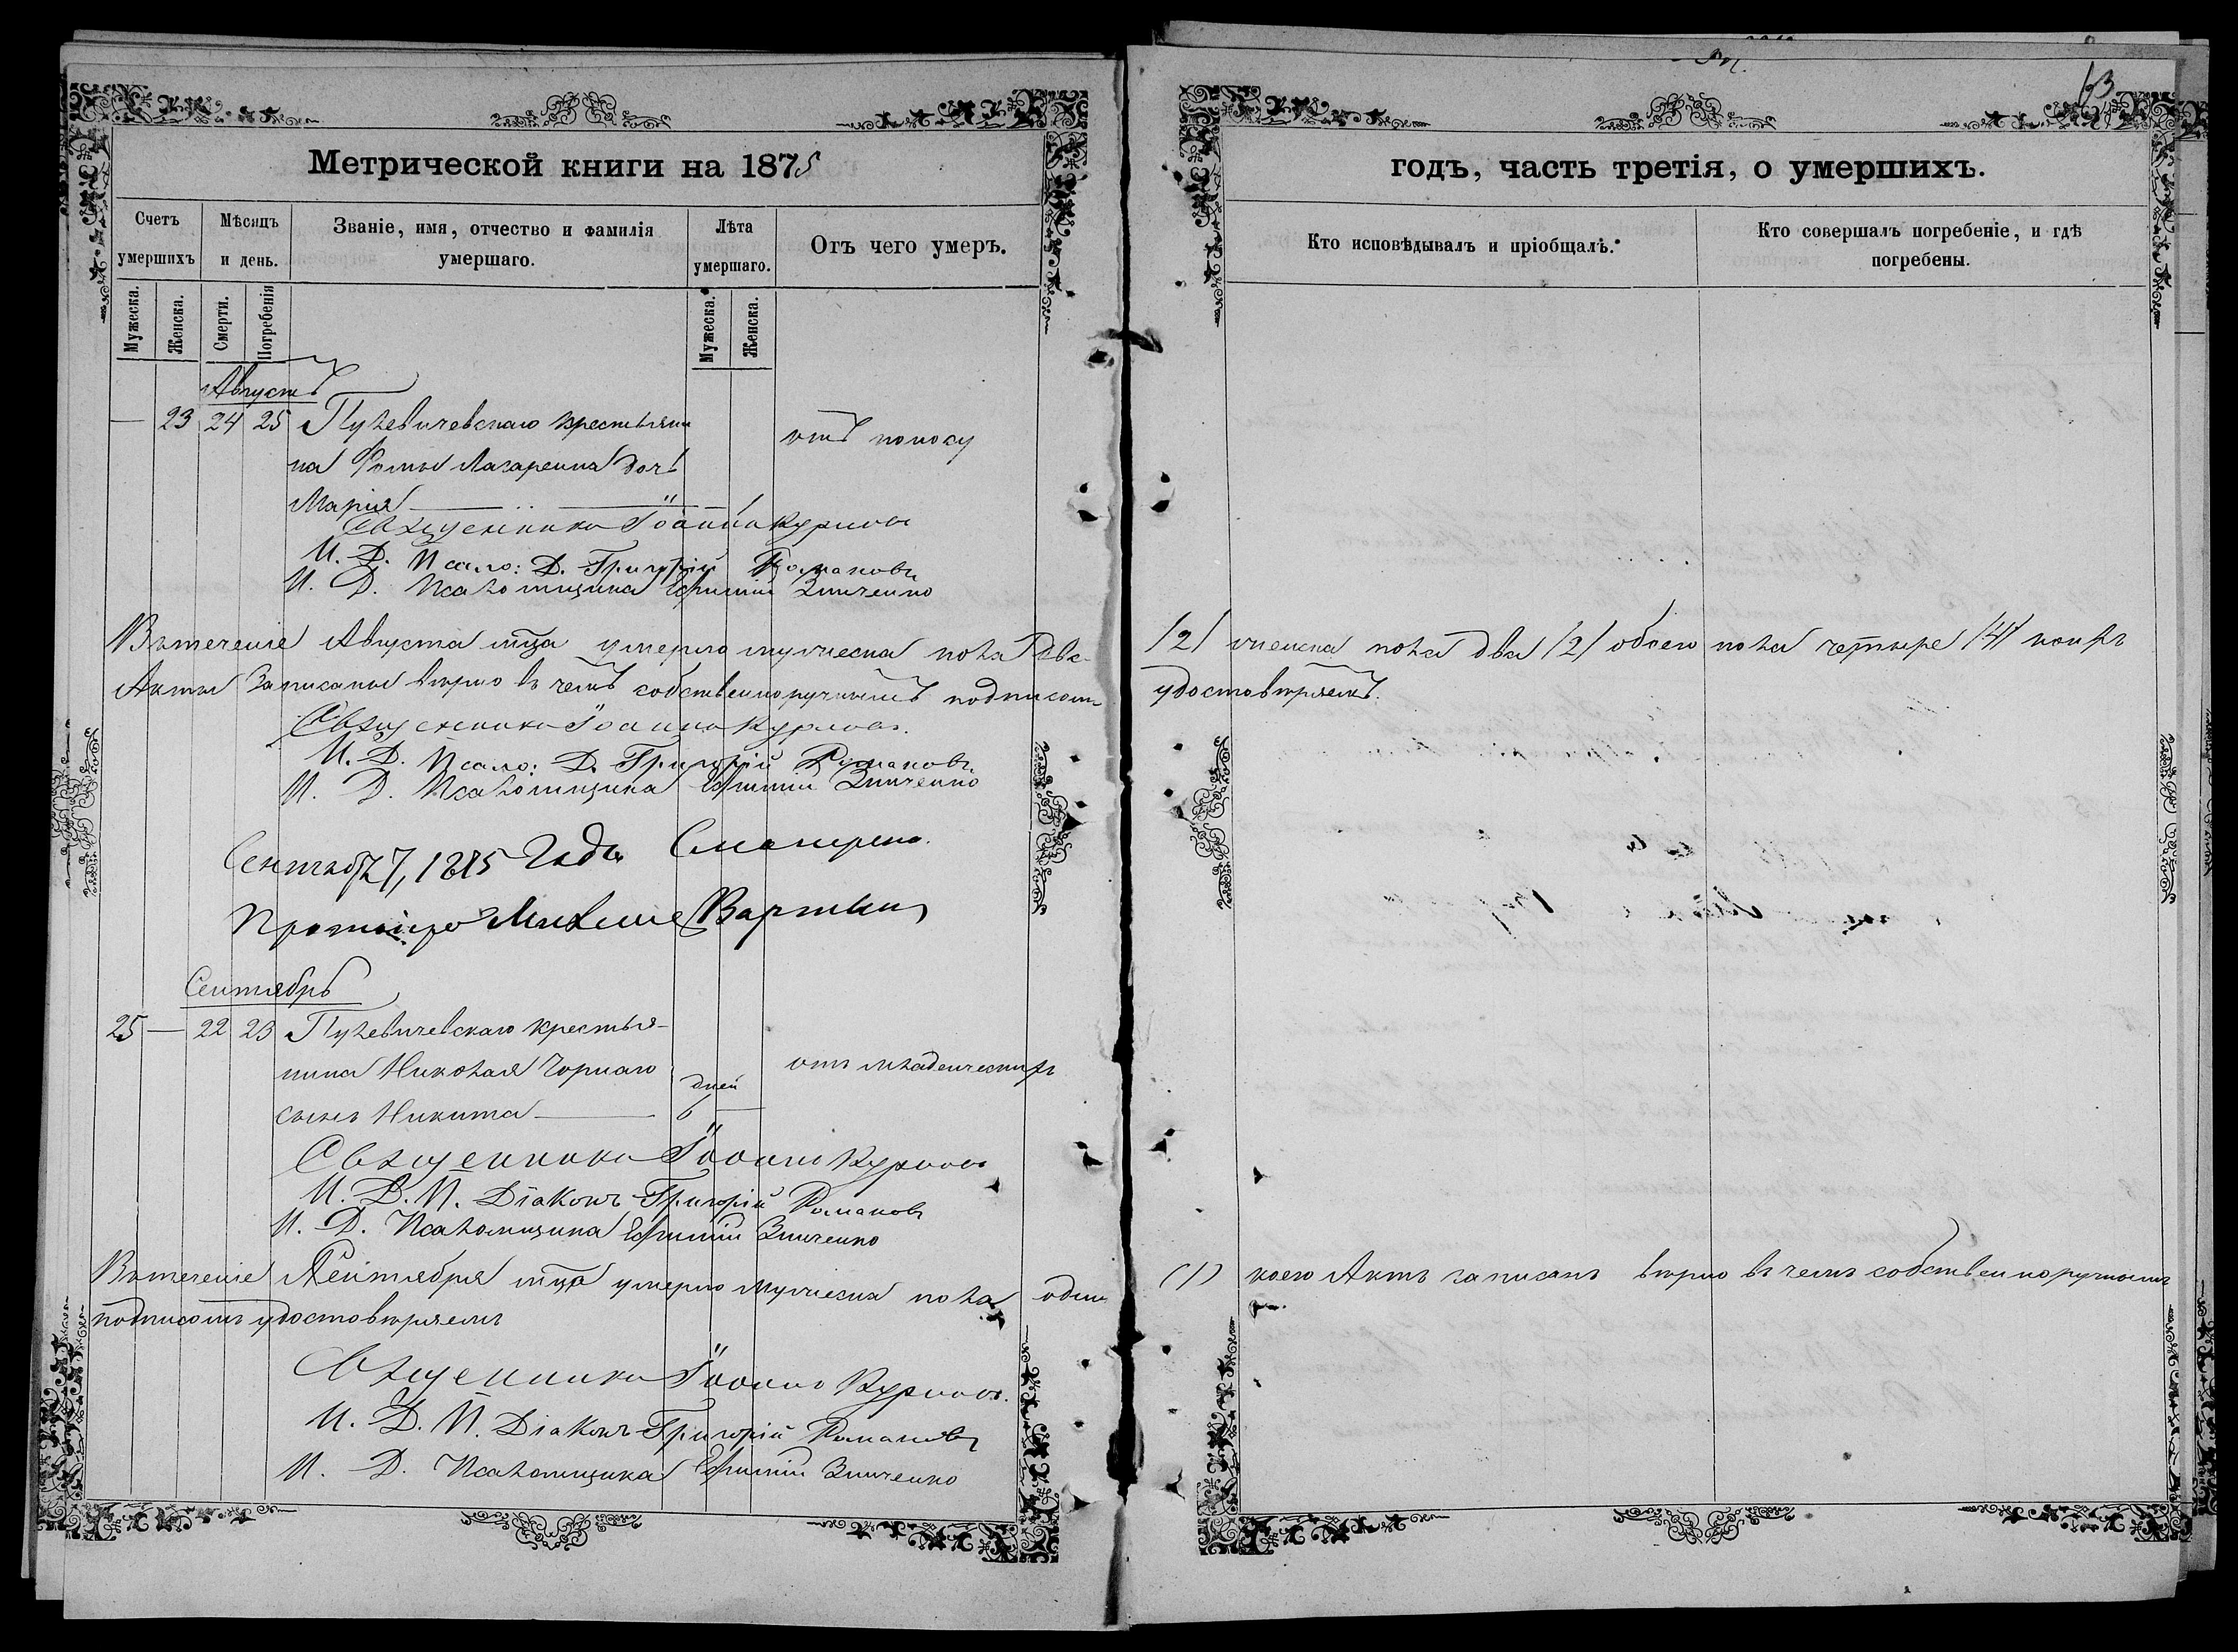 63
Метрической книги на 1875
годъ, часть третія, о умершихъ.
Счетъ умершихъ
Мѣсяцъ и день.
Званіе, имя, отчество и фамилія умершаго.
Лѣта умершаго.
Отъ чего умеръ.
Кто исповѣдывалъ и пріобщалъ.
Кто совершалъ погребеніе, и гдѣ погребены.
Мужеска.
Женска.
Смерти.
Погребенія
Мужеска.
Женска.
Августъ
— 23 24 25 Пулевичевскаго крестьяни
на Фомы Лазаренка дочь
Марія — 1
отъ поносу
Священникъ Іоаннъ Курловъ
И. Д. Псало: Д. Григорій Романовъ
И. Д. Псаломщика Ефимій Зинченко
Въ теченіе Августа мца умерло мужеска пола два
/2/ женска пола два /2/ обоего пола четыре /4/ коихъ
Акты записаны вѣрно въ чемъ собственноручнымъ подписомъ
удостовѣряемъ.
Священникъ Іоаннъ Курловъ.
И. Д. Псало: Д. Григорій Романовъ
И. Д. Псаломщика Ефимій Зинченко
Сентяб 7, 1875 года Смотрено.
Протоіерей
Сентябрь
25 — 22 23 Пулевичевскаго крестья-
нина Николая Чорнаго
сынъ Никита — дней 6 —
отъ младенческихъ
Священникъ Іоаннъ Курловъ
И. Д. П. Діаконъ Григорій Романовъ
И. Д. Псаломщика Ефимій Зинченко
Въ теченіе Сентября мца умерло мужеска пола одинъ
(1) коего Актъ записанъ вѣрно въ чемъ собственноручнымъ
подписомъ удостовѣряемъ
Священникъ Іоаннъ Курловъ.
И. Д. П. Діаконъ Григорій Романовъ
И. Д. Псаломщика Ефимій Зинченко